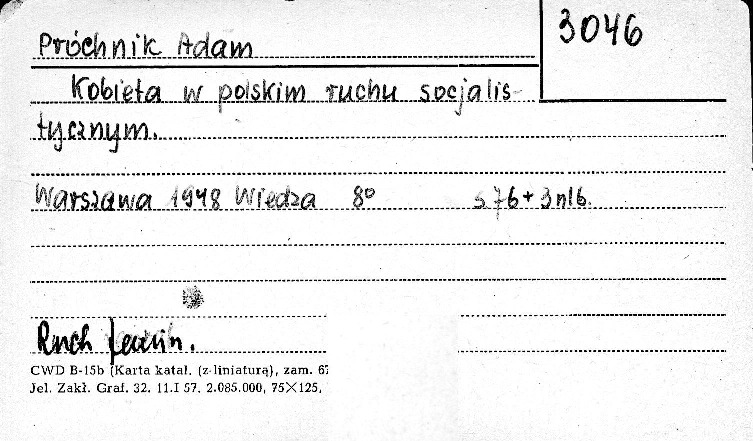 Próchnik Adam
3046
Kobieta w polskim ruchu socjalis-
tycznym.
Warszawa 1948 Wiedza 8° s 76 + 3 nlb.
Ruch femin.
CWD B-15b (Karta katal. (z liniaturą), zam. 67
Jel. Zakł. Graf. 32. 11.I 57. 2.085.000, 75×125,